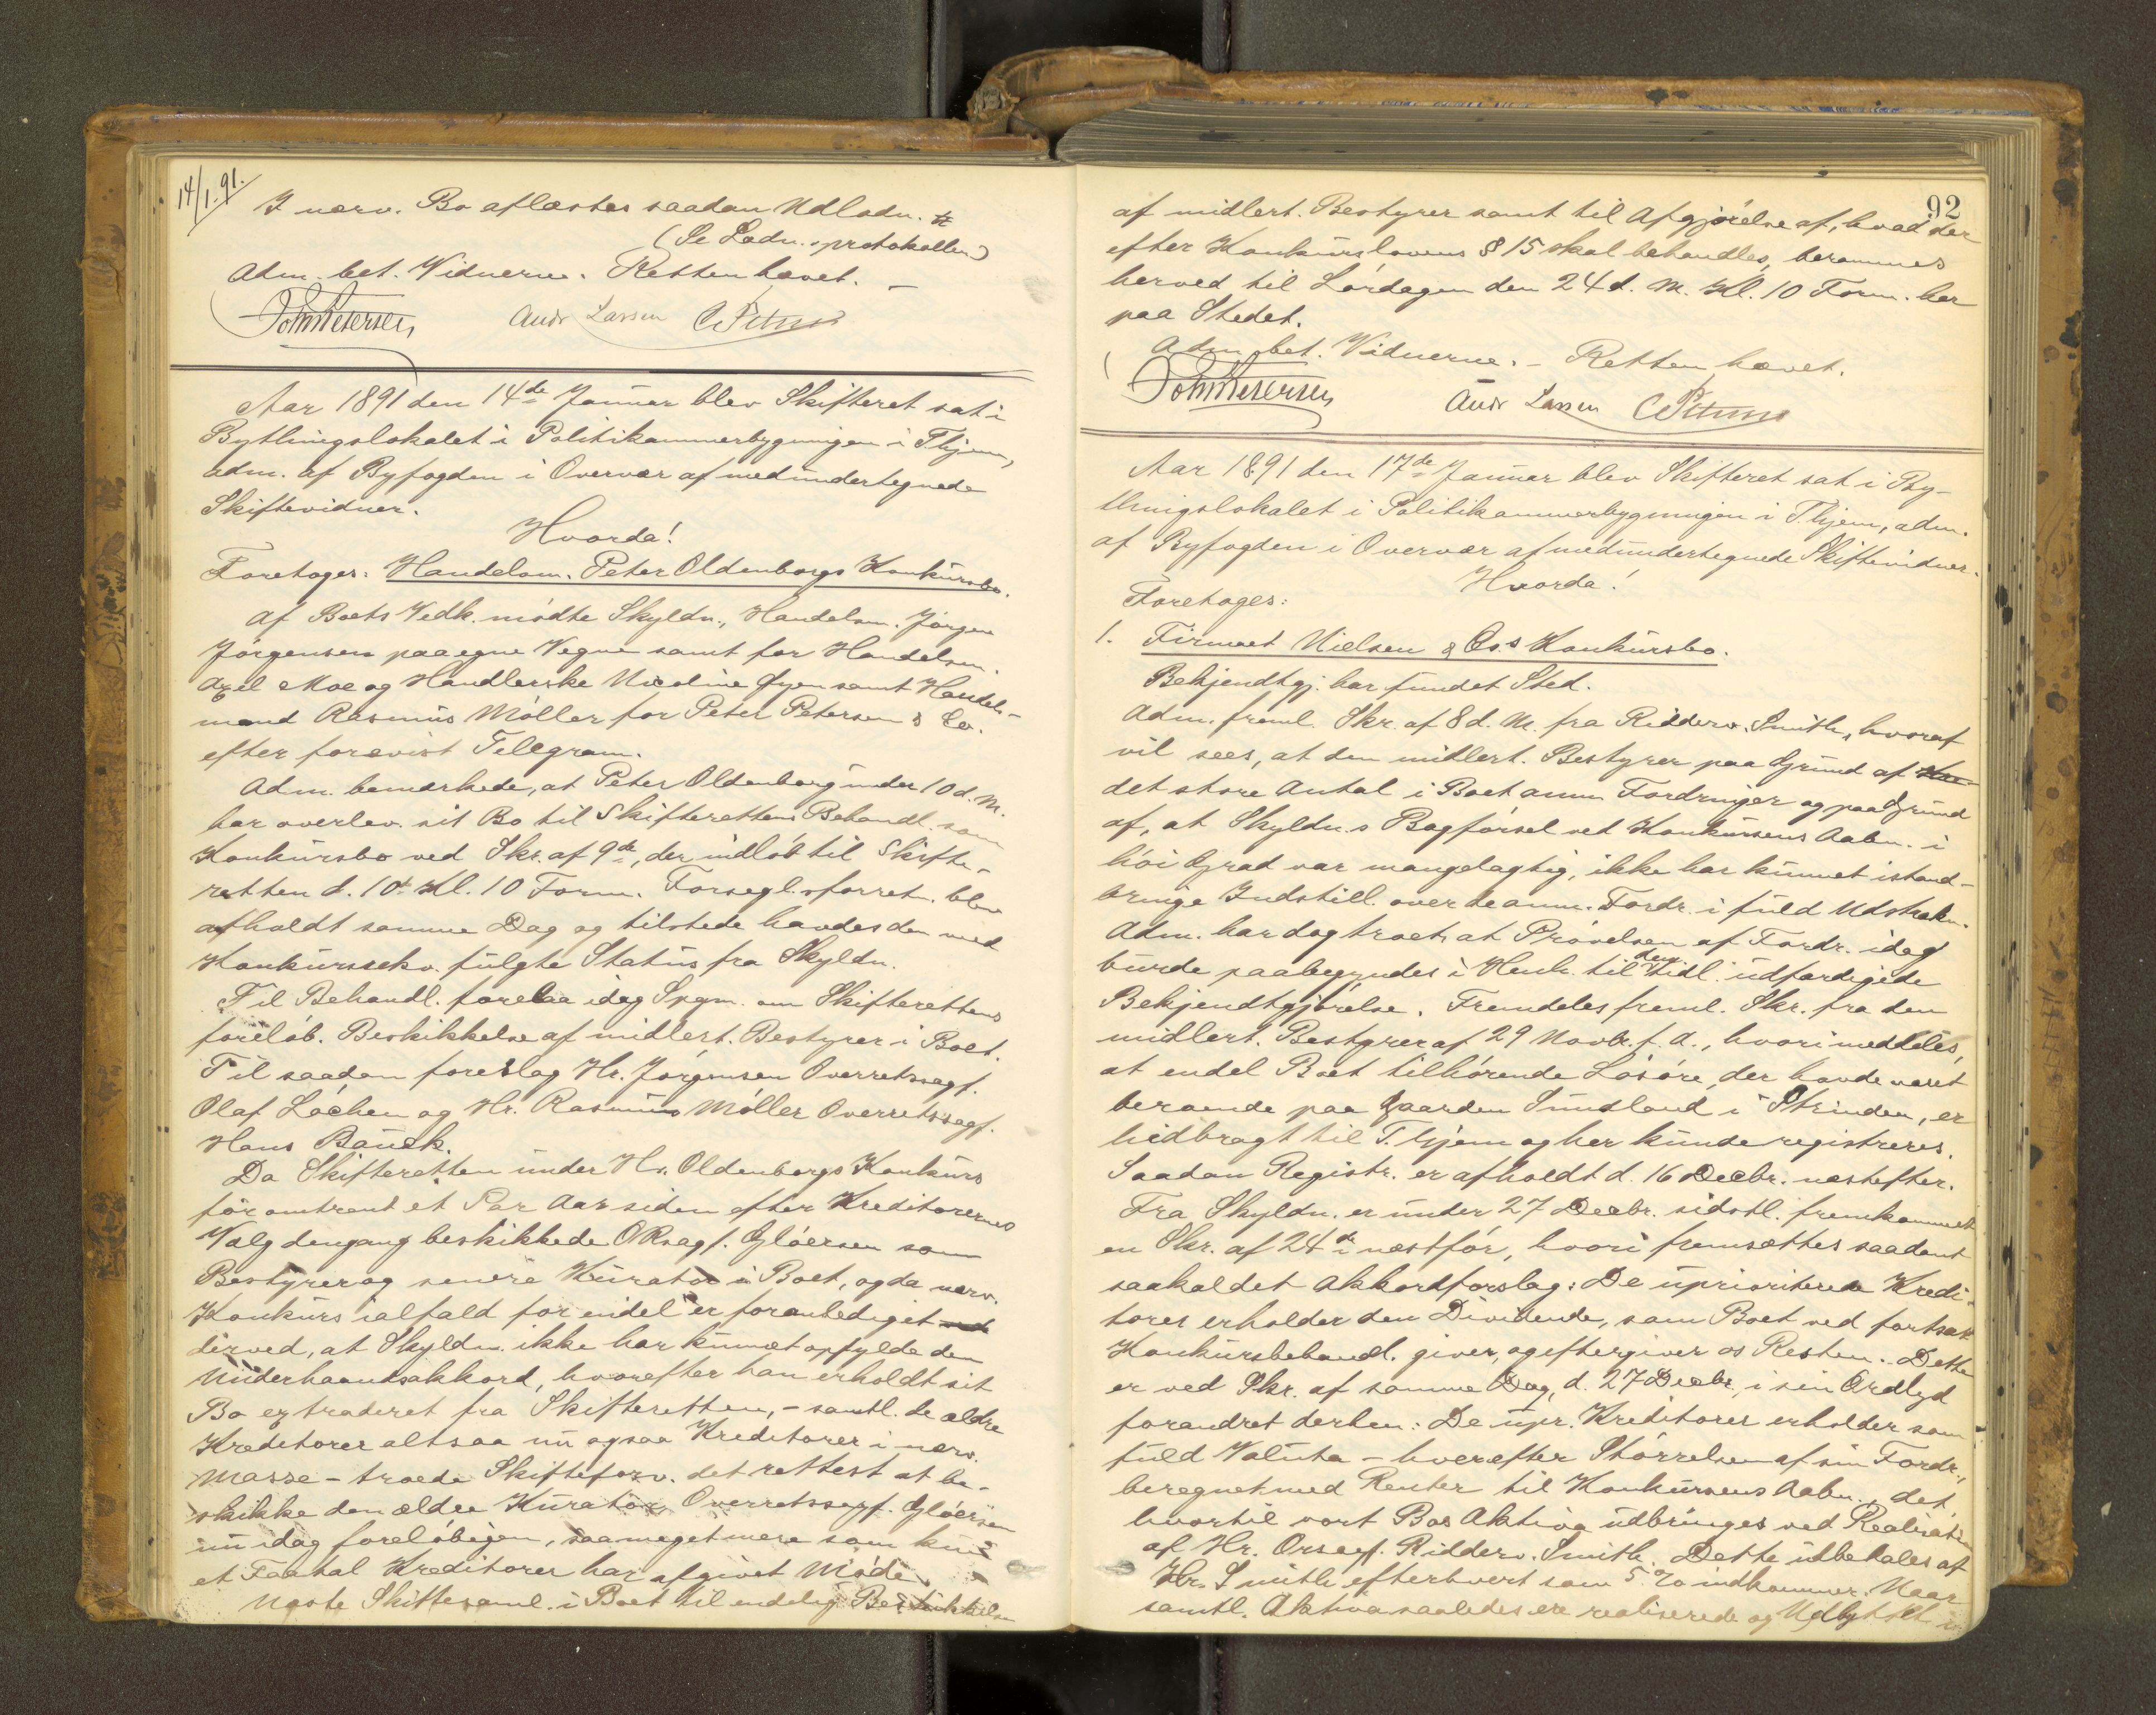 14/1. 91.
I nærv. Bo aflæstes saadan Udlodn. #
(Se Lodn.sprotokollen)
Adm. bet. Vidnerne. Retten hævet. —
Joh. Petersen Andr Larsen
Aar 1891 den 14de Januar blev Skifteret sat i
Bythingslokalet i Politikammerbygningen i T.hjem,
adm. af Byfogden i Overvær af medundertegnede
Skiftevidner.
Hvorda!
Foretoges: Handelsm. Peter Oldenborgs Konkursbo.
Af Boets Vedk. mødte Skyldn., Handelsm. Jørgen
Jørgensen paa egne Vegne samt for Handelsm.
Axel Moe og Handlerske Nicoline Øyen samt Handels-
mand Rasmus Møller for Peter Petersen & Co.
efter forevist Telegram.
Adm. bemærkede, at Peter Oldenborg under 10 d. M.
har overlev. sit Bo til Skifterettens Behandl. som
Konkursbo ved Skr. af 9de, der indløb til Skifte-
retten d. 10de Kl. 10 Form. Forsegl.sforretn. blev
afholdt samme Dag og tilstede havdes den med
Konkursrekv. fulgte Status fra Skyldn.
Til Behandl. forelaa idag Spgm. om Skifterettens
foreløb. Beskikkelse af midlert. Bestyrer i Boet.
Til saadan foreslog Hr. Jørgensen Overretssagf.
Olaf Løchen og Hr. Rasmus Møller Overretssagf.
Hans Bauck.
Da Skifteretten under Hr. Oldenborgs Konkurs
for omtrent et Par Aar siden efter Kreditorernes
Valg dengang beskikkede ORsagf. Gløersen som
Bestyrer og senere Kurator i Boet, og da nærv.
Konkurs ialfald for endel er foranlediget
derved, at Skyldn. ikke har kunnet opfylde den
Underhaandsakkord, hvorefter han erholdt sit
Bo extraderet fra Skifteretten, - samtl. de ældre
Kreditorer altsaa nu ogsaa Kreditorer i nærv.
Masse - troede Skifteforv. det rettest at be-
skikke den ældre Kurator, Overretssagf. Gløersen
nu idag foreløbigen, saameget mere som kun
et Faatal Kreditorer har afgivet Møde.
Næste Skiftesaml. i Boet til endelig Beskikkelse
92
af midlert. Bestyrer samt til Afgjørelse af, hvad der
efter Konkurslovens § 15 skal behandles, berammes
herved til Lørdagen den 24 d. M. Kl. 10 Form. her
paa Stedet.
Adm. bet. Vidnerne. - Retten hævet.
Joh. Petersen Andr Larsen
Aar 1891 den 17de Januar blev Skifteret sat i By-
thingslokalet i Politikammerbygningen i T.hjem, adm.
af Byfogden i Overvær af medundertegnede Skiftevidner.
Hvorda!
Foretoges:
1. Firmaet Nielsen & Co.s Konkursbo.
Bekjendtgj. har fundet Sted.
Adm. freml. Skr. af 8 d. M. fra Ridderv. Smith, hvoraf
vil sees, at den midlert. Bestyrer paa Grund af
det store Antal i Boet anm. Fordringer og paa Grund
af, at Skyldn.s Bogførsel ved Konkursens Aabn. i
høi Grad var mangelagtig, ikke har kunnet istand-
bringe Indstill. over de anm. Fordr. i fuld Udstrækn.
Adm. har dog troet, at Prøvelsen af Fordr. idag
burde paabegyndes i Henh. til den tidl. udfærdigede
Bekjendtgjørelse. Fremdeles freml. Skr. fra den
midlert. Bestyrer af 29 Novbr. f. A., hvori meddeles,
at endel Boet tilhørende Løsøre, der havde været
beroende paa Gaarden Sundland i Strinden, er
hidbragt til T.hjem og her kunde registreres.
Saadan Registr. er afholdt d. 16 Decbr. næstefter.
Fra Skyldn. er under 27 Decbr. sidstl. fremkommet
en Skr. af 24de næstfør, hvori fremsættes saadant
saakaldet Akkordforslag: De uprioriterede Kredi-
torer erholder den Dividende, som Boet ved fortsat
Konkursbehandl. giver, og eftergiver os Resten. - Dette
er ved Skr. af samme Dag, d. 27 Decbr., i sin Ordlyd
forandret derhen: De upr. Kreditorer erholder som
fuld Valuta - hver efter Størrelsen af sin Fordr.,
beregnet med Renter til Konkursens Aabn., det,
hvortil vort Bos Aktiva udbringes ved Realisation
af Hr. Orsagf. Ridderv. Smith. Dette udbetales af
Hr. Smith efterhvert som 5 % indkommer. Naar
samtl. Aktiva saaledes ere realiserede og Udbyttet